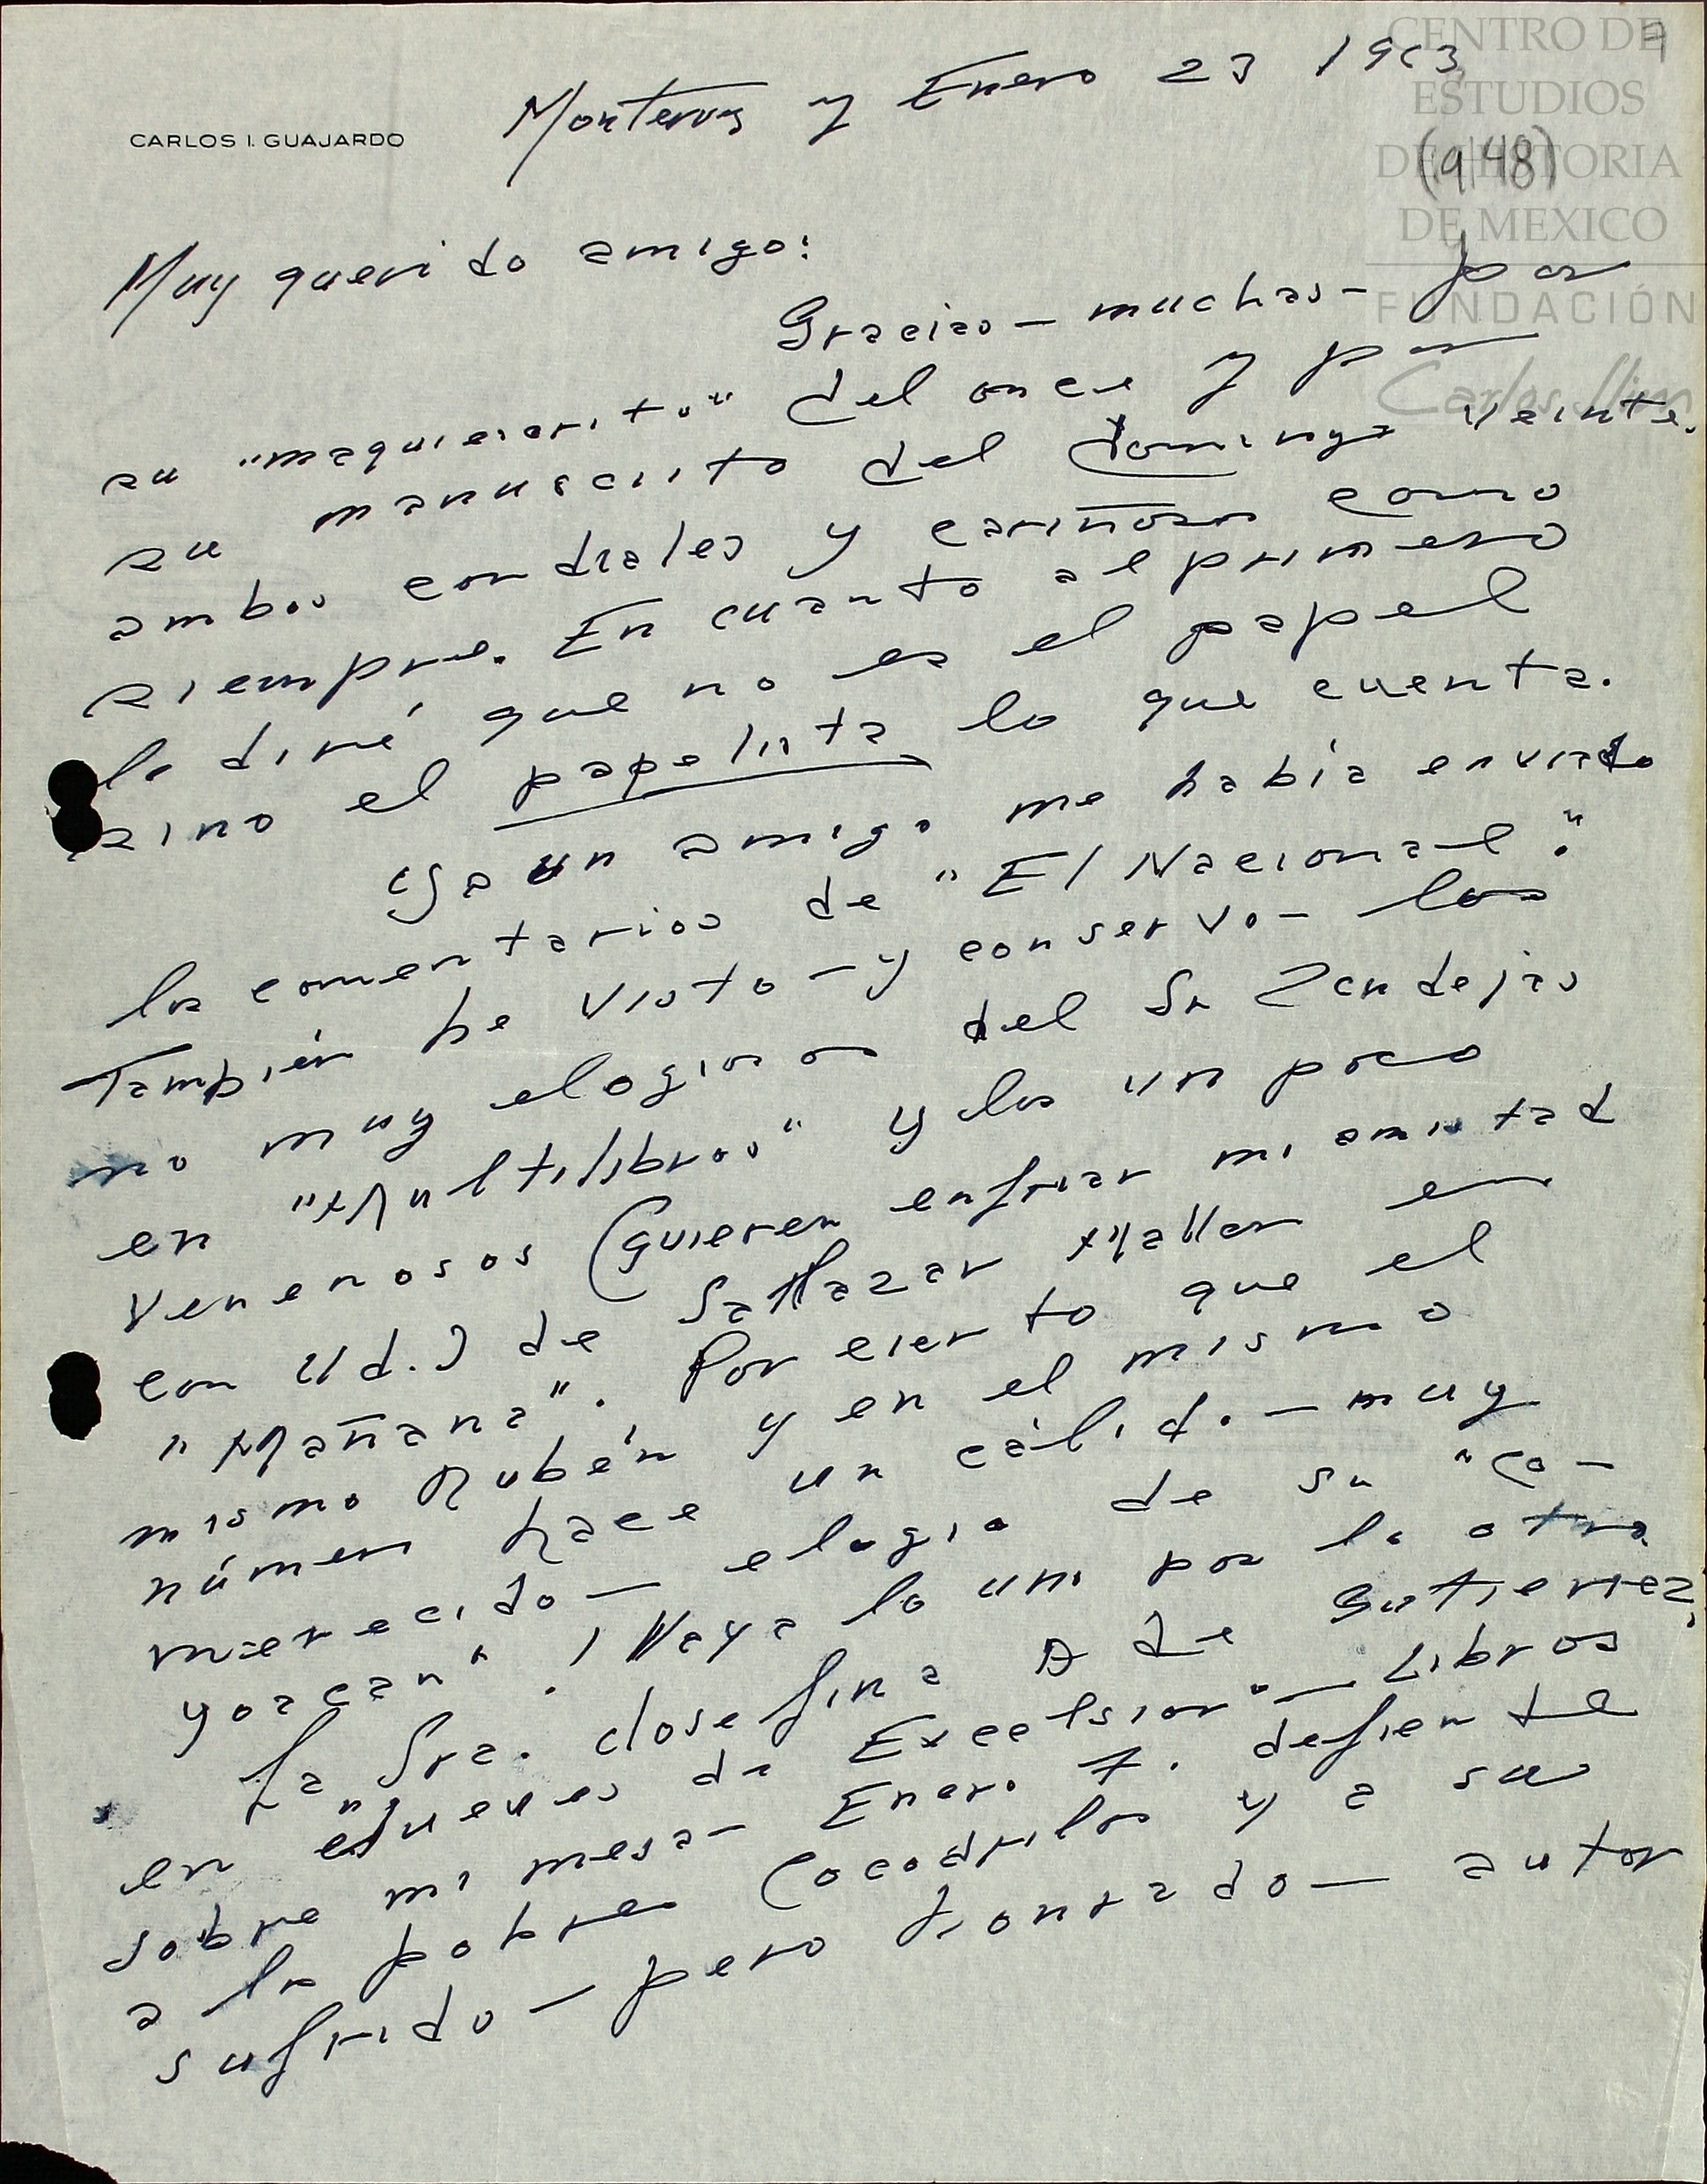 CENTRO DE
ESTUDIOS
DE HISTORIA
DE MEXICO
FUNDACIÓN
Carlos Slim
(9/48)
CARLOS I. GUAJARDO
Monterrey Enero 23 1963
Muy querido amigo:
Gracias – muchas – por
su "maquiscrito" del once y por
su manuscrito del domingo veinte.
ambos cordiales y cariñosos como
siempre. En cuanto al primero
le diré que no es el papel
sino el papelista lo que cuenta.
Ya un amigo me había enviado
los comentarios de "El Nacional".
También he visto – y conservo – los
no muy elogiosos del Sr Zendejas
en "Multilibros" y los un poco
venenosos (quieren enfriar mi amistad
con Ud.) de Sallazar Mallen en
"Mañana". Por cierto que el
mismo Rubén y en el mismo
número hace un cálido – muy
merecido – elogio de su "Co-
yoacan". ¡Vaya lo uno por lo otro.
La Sra. Josefina A de Gutierrez,
en "Jueves de Excelsior" – Libros
sobre mi mesa – Enero 7. defiende
a los pobres Cocodrilos y a su
sufrido – pero honrado – autor